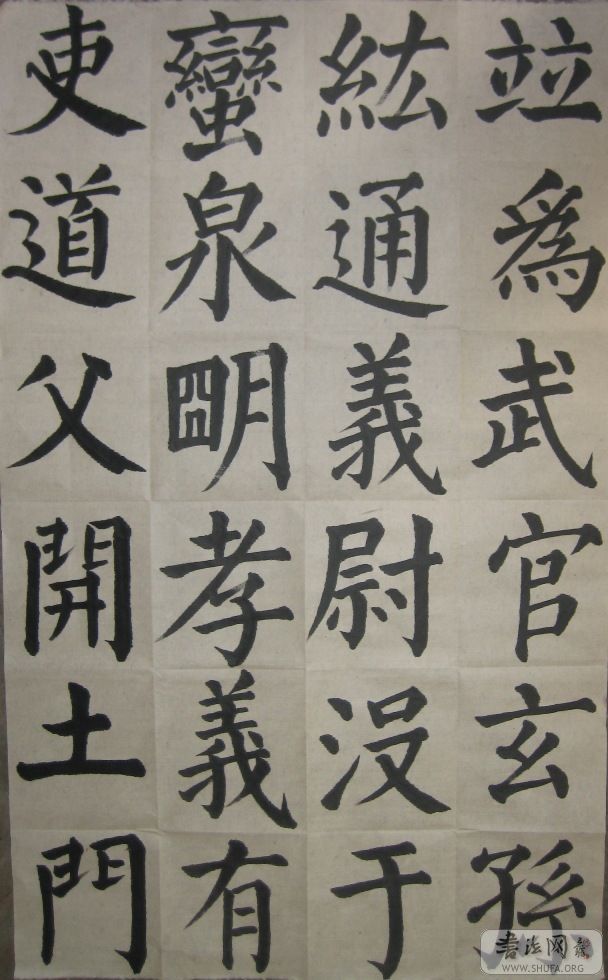 竝爲武官玄孫
紘通義尉没于
蠻泉朙孝義有
吏道父開土門
书法网
WWW.SHUFA.ORG